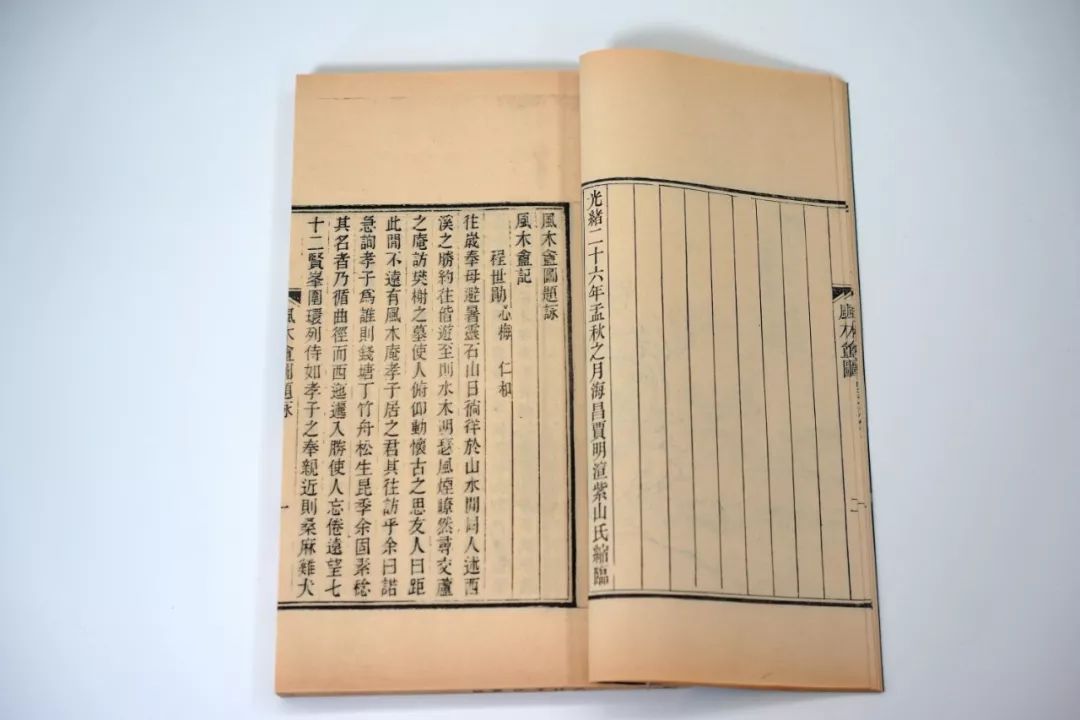 光緒二十六年孟秋之月海昌賈明渲紫山氏縮臨
風木盦圖題詠
風木盦記
程世勛 心梅 仁和
往歲奉母避暑靈石山日徜徉於山水間同人述西
溪之勝約往偕遊至則水木明瑟風煙瞭然尋交蘆
之庵訪樊榭之墓使人俯仰動懷古之思友人曰距
此間不遠有風木庵孝子居之君其往訪乎余曰諾
急詢孝子爲誰則錢塘丁竹舟松生昆季余固素稔
其名者乃循曲徑而西迤邐入勝使人忘倦遠望七
十二賢峯圍環列侍如孝子之奉親近則桑麻雞犬
風木盦圖題詠
一
風木盦圖
二